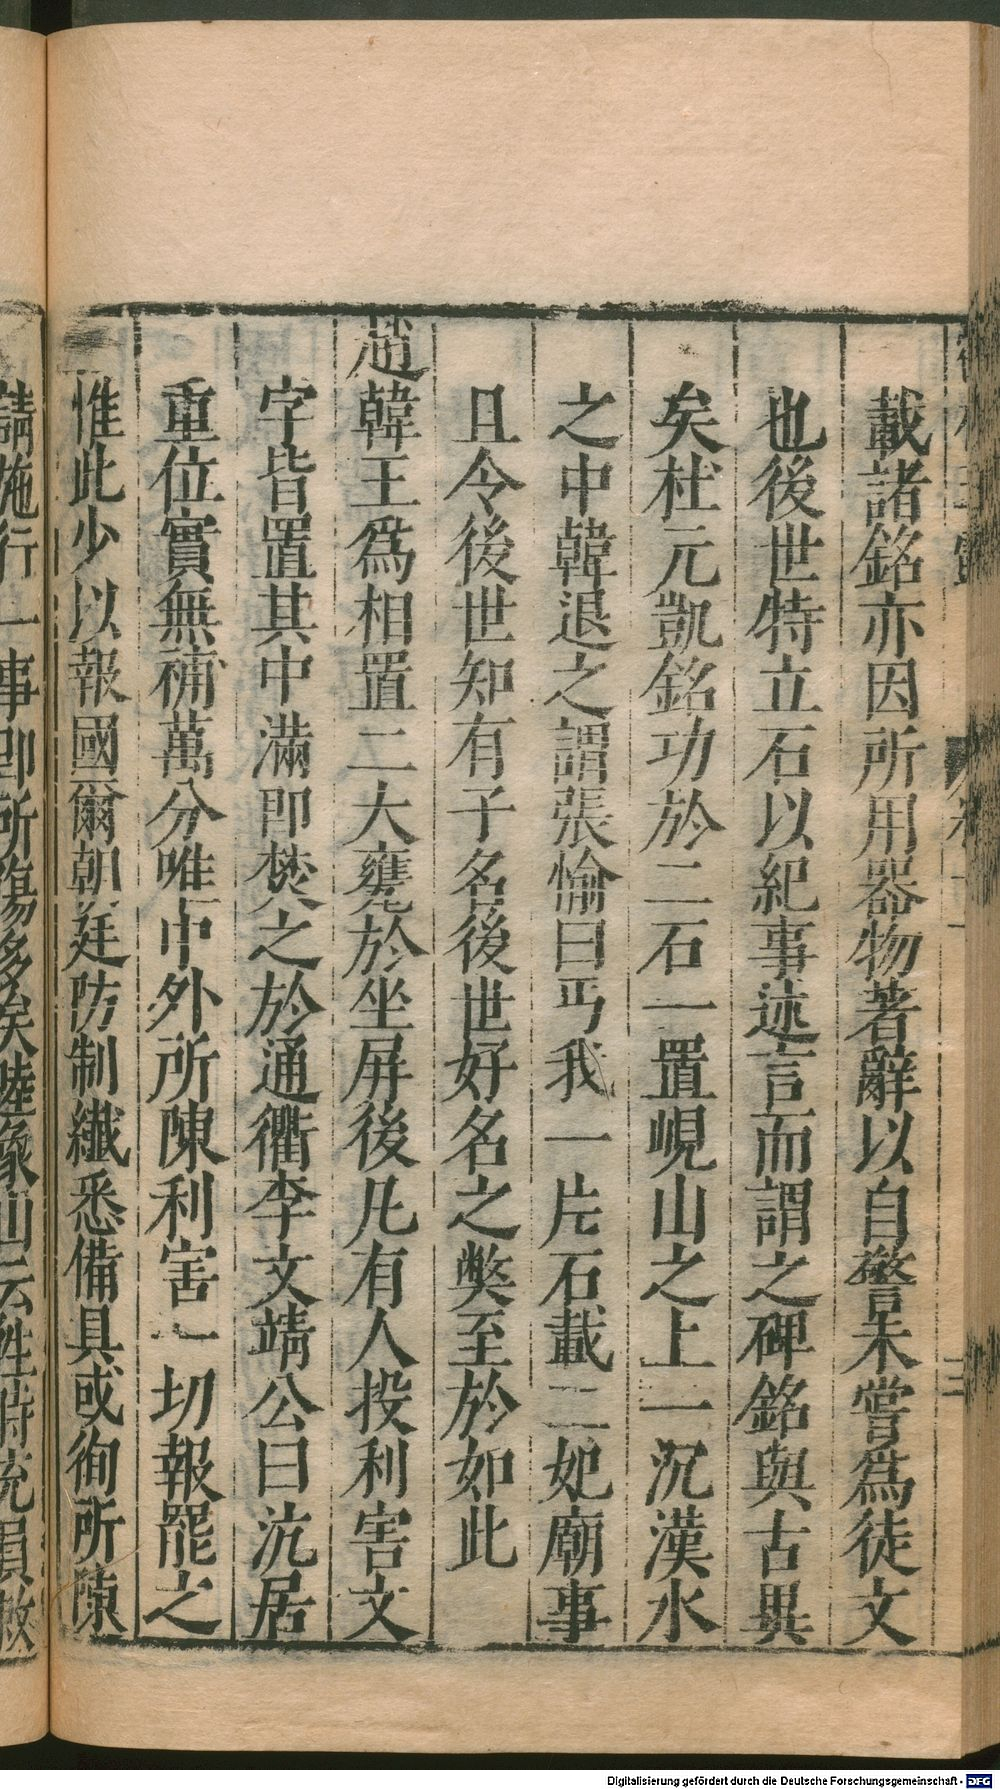 載諸銘亦因所用器物著辭以自警未嘗爲徒文
也後世特立石以紀事述言而謂之碑銘與古異
矣杜元凱銘功於二石一置峴山之上一沉漢水
之中韓退之謂張愉曰丐我一片石載二妃廟事
且令後世知有子名後世好名之獘至於如此
趙韓王爲相置二大甕於坐屏後凡有人投利害文
字皆置其中滿即焚之於通衢李文靖公曰沆居
重位實無補萬分唯中外所陳利害一切報罷之
惟此少以報國爾朝廷防制纖悉備具或徇所陳
請施行一事即所傷多矣陸象山云
Digitalisierung gefördert durch die Deutsche Forschungsgemeinschaft - DFG